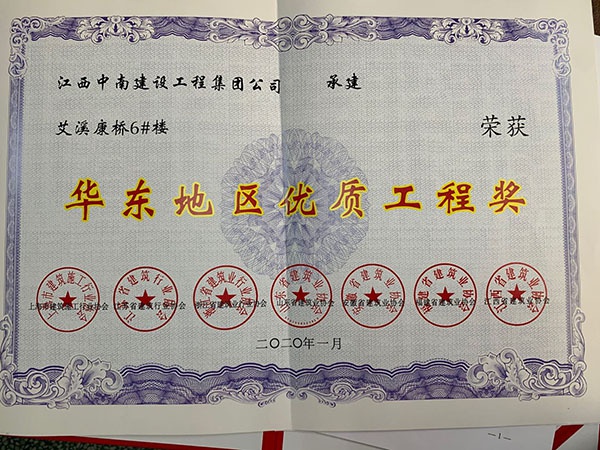 江西中南建设工程集团公司 承建
艾溪康桥6#楼 荣获
华东地区优质工程奖
上海市建筑施工行业协会 江苏省建筑行业协会 浙江省建筑业行业协会 山东省建筑业协会 安徽省建筑业协会 福建省建筑业协会 江西省建筑业协会
二〇二〇年一月
—1—